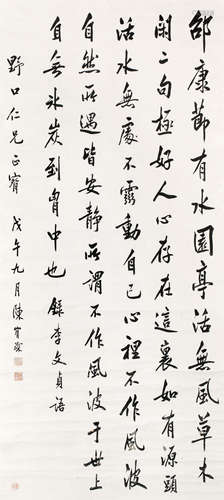 邵康節有水園亭活無風草木
閑二句極好人心存在這裏如有源頭
活水無處不靈動自己心裡不作風波
自然所遇皆安靜所謂不作風波于世上
自無冰炭到胷中也 錄李文貞語
野口仁兄正 戊午九月陳寶琛